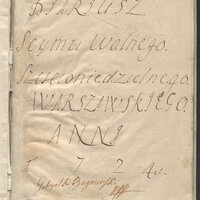 DIARIUSZ
Seymu Walnego.
Szescioniedzielnego.
WARSZAWSKIEGO.
ANNI
1 7 2 4